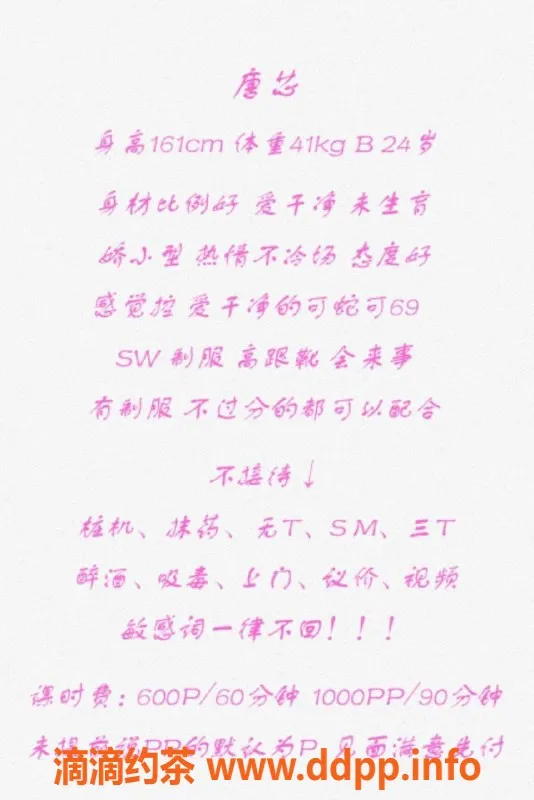 唐芯
身高161cm 体重41kg B 24岁
身材比例好 爱干净 未生育
娇小型 热情不冷场 态度好
感觉控 爱干净的可蛇可69
SW 制服 高跟靴 会来事
有制服 不过分的都可以配合
不接待↓
桩机、抹药、无T、SM、三T
醉酒、吸毒、上门、议价、视频
敏感词一律不回！！！
课时费：600P/60分钟 1000PP/90分钟
未提前说PP的默认为P 见面满意先付
滴滴约茶 www.ddpp.info